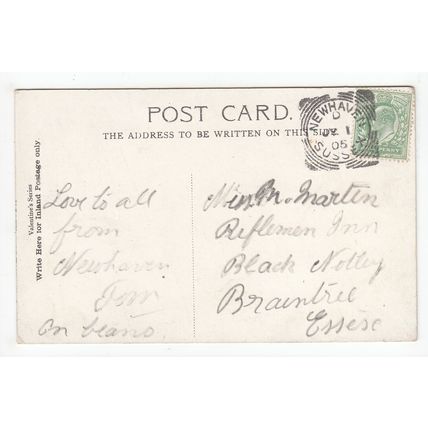 POST CARD.
THE ADDRESS TO BE WRITTEN ON THIS SIDE
NEWHAVEN
D
1
05
SUSSEX
Valentine's Series
Write Here for Inland Postage only.
Love to all
from
Newhaven
Tom
On beano.
Miss M. Martin
Riflemen Inn
Black Notley
Braintree
Essex